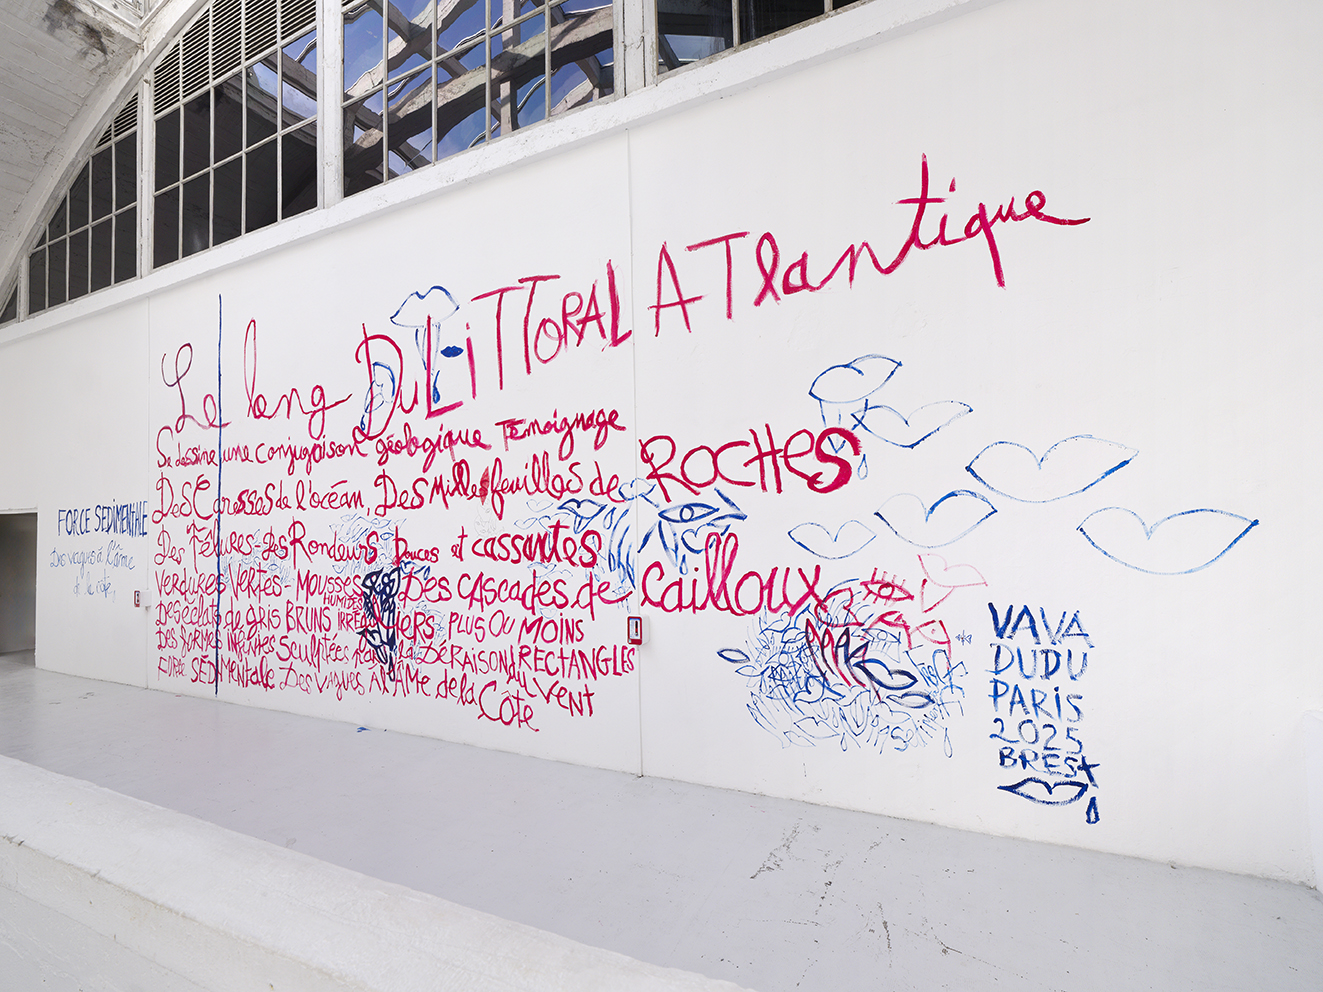 Le long Du LiTTORAL ATlantique
Se dessine une conjugaison géologique Témoignage
Des Caresses de l'océan, Des Millesfeuilles de ROCHes
Des Fêlures - Des Rondeurs Douces et cassantes
VERDURES VERTES - MOUSSES HUMIDES Des CAScades de cailloux
Des éclats de GRIS BRUNS IRRÉGULIERS PLUS OU MOINS
Des FORMES INFINITES Sculptées par la DÉRAISON du RECTANGLES
FORCE SÉDIMENTale Des vagues A l'ÂMe de la Côte du VENT
FORCE SÉDIMENTALE
Des vagues à l'âme
de la côte,
VAVA
DUDU
PARiS
2025
BREST